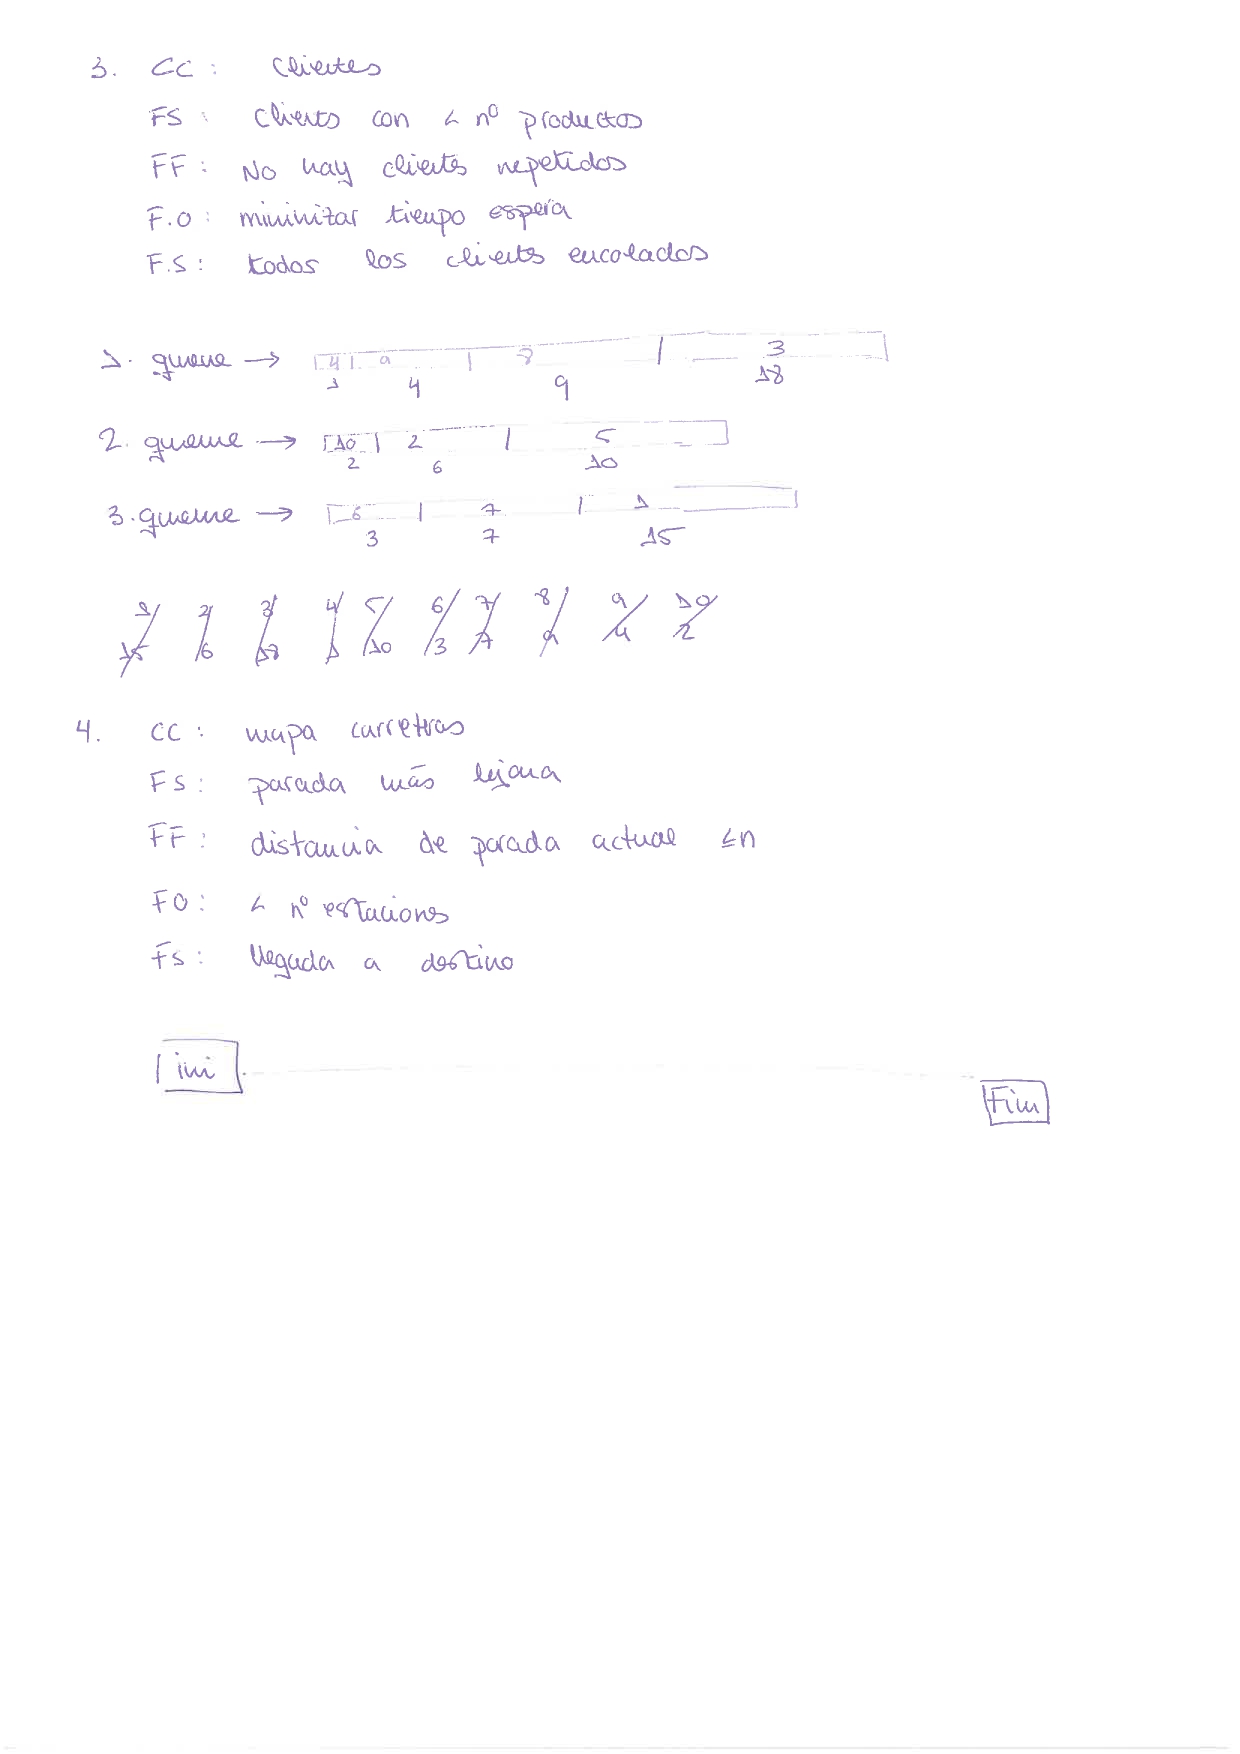 3. CC: Clientes
FS: Cliente con < nº productos
FF: No hay clientes repetidos
F.O: minimizar tiempo espera
F.S: todos los clientes encolados
1. queue → 4 9 8 3
1 4 9 18
2. queue → 10 2 5
2 6 10
3. queue → 6 7 1
3 7 15
1/15 2/6 3/18 4/1 5/10 6/3 7/7 8/9 9/4 10/2
4. CC: mapa carreteras
FS: parada más lejana
FF: distancia de parada actual ≤n
FO: < nº estaciones
FS: llegada a destino
ini
Fin